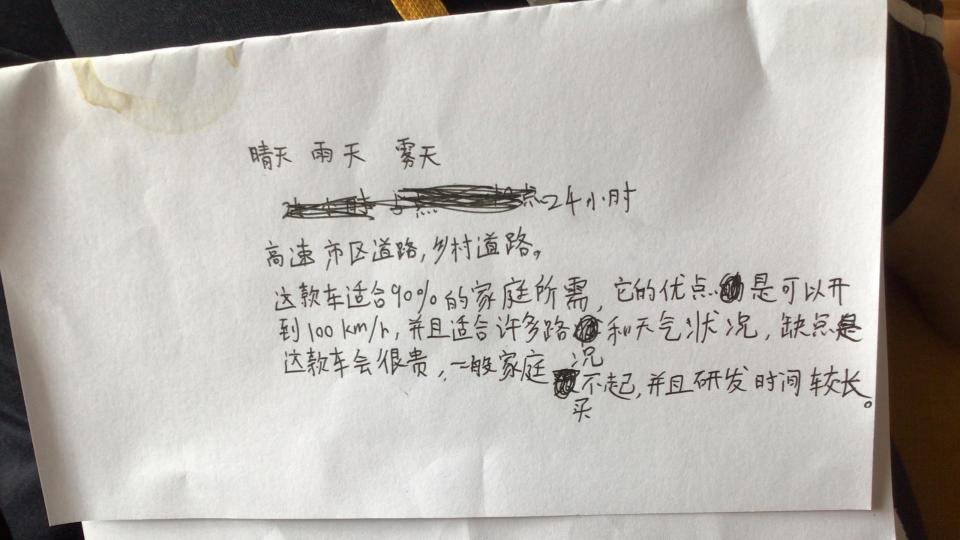 晴天 雨天 雾天
24小时
高速 市区道路,乡村道路。
这款车适合90%的家庭所需,它的优点是可以开
到100 km/h,并且适合许多路况和天气状况,缺点是
这款车会很贵,一般家庭买不起,并且研发时间较长。